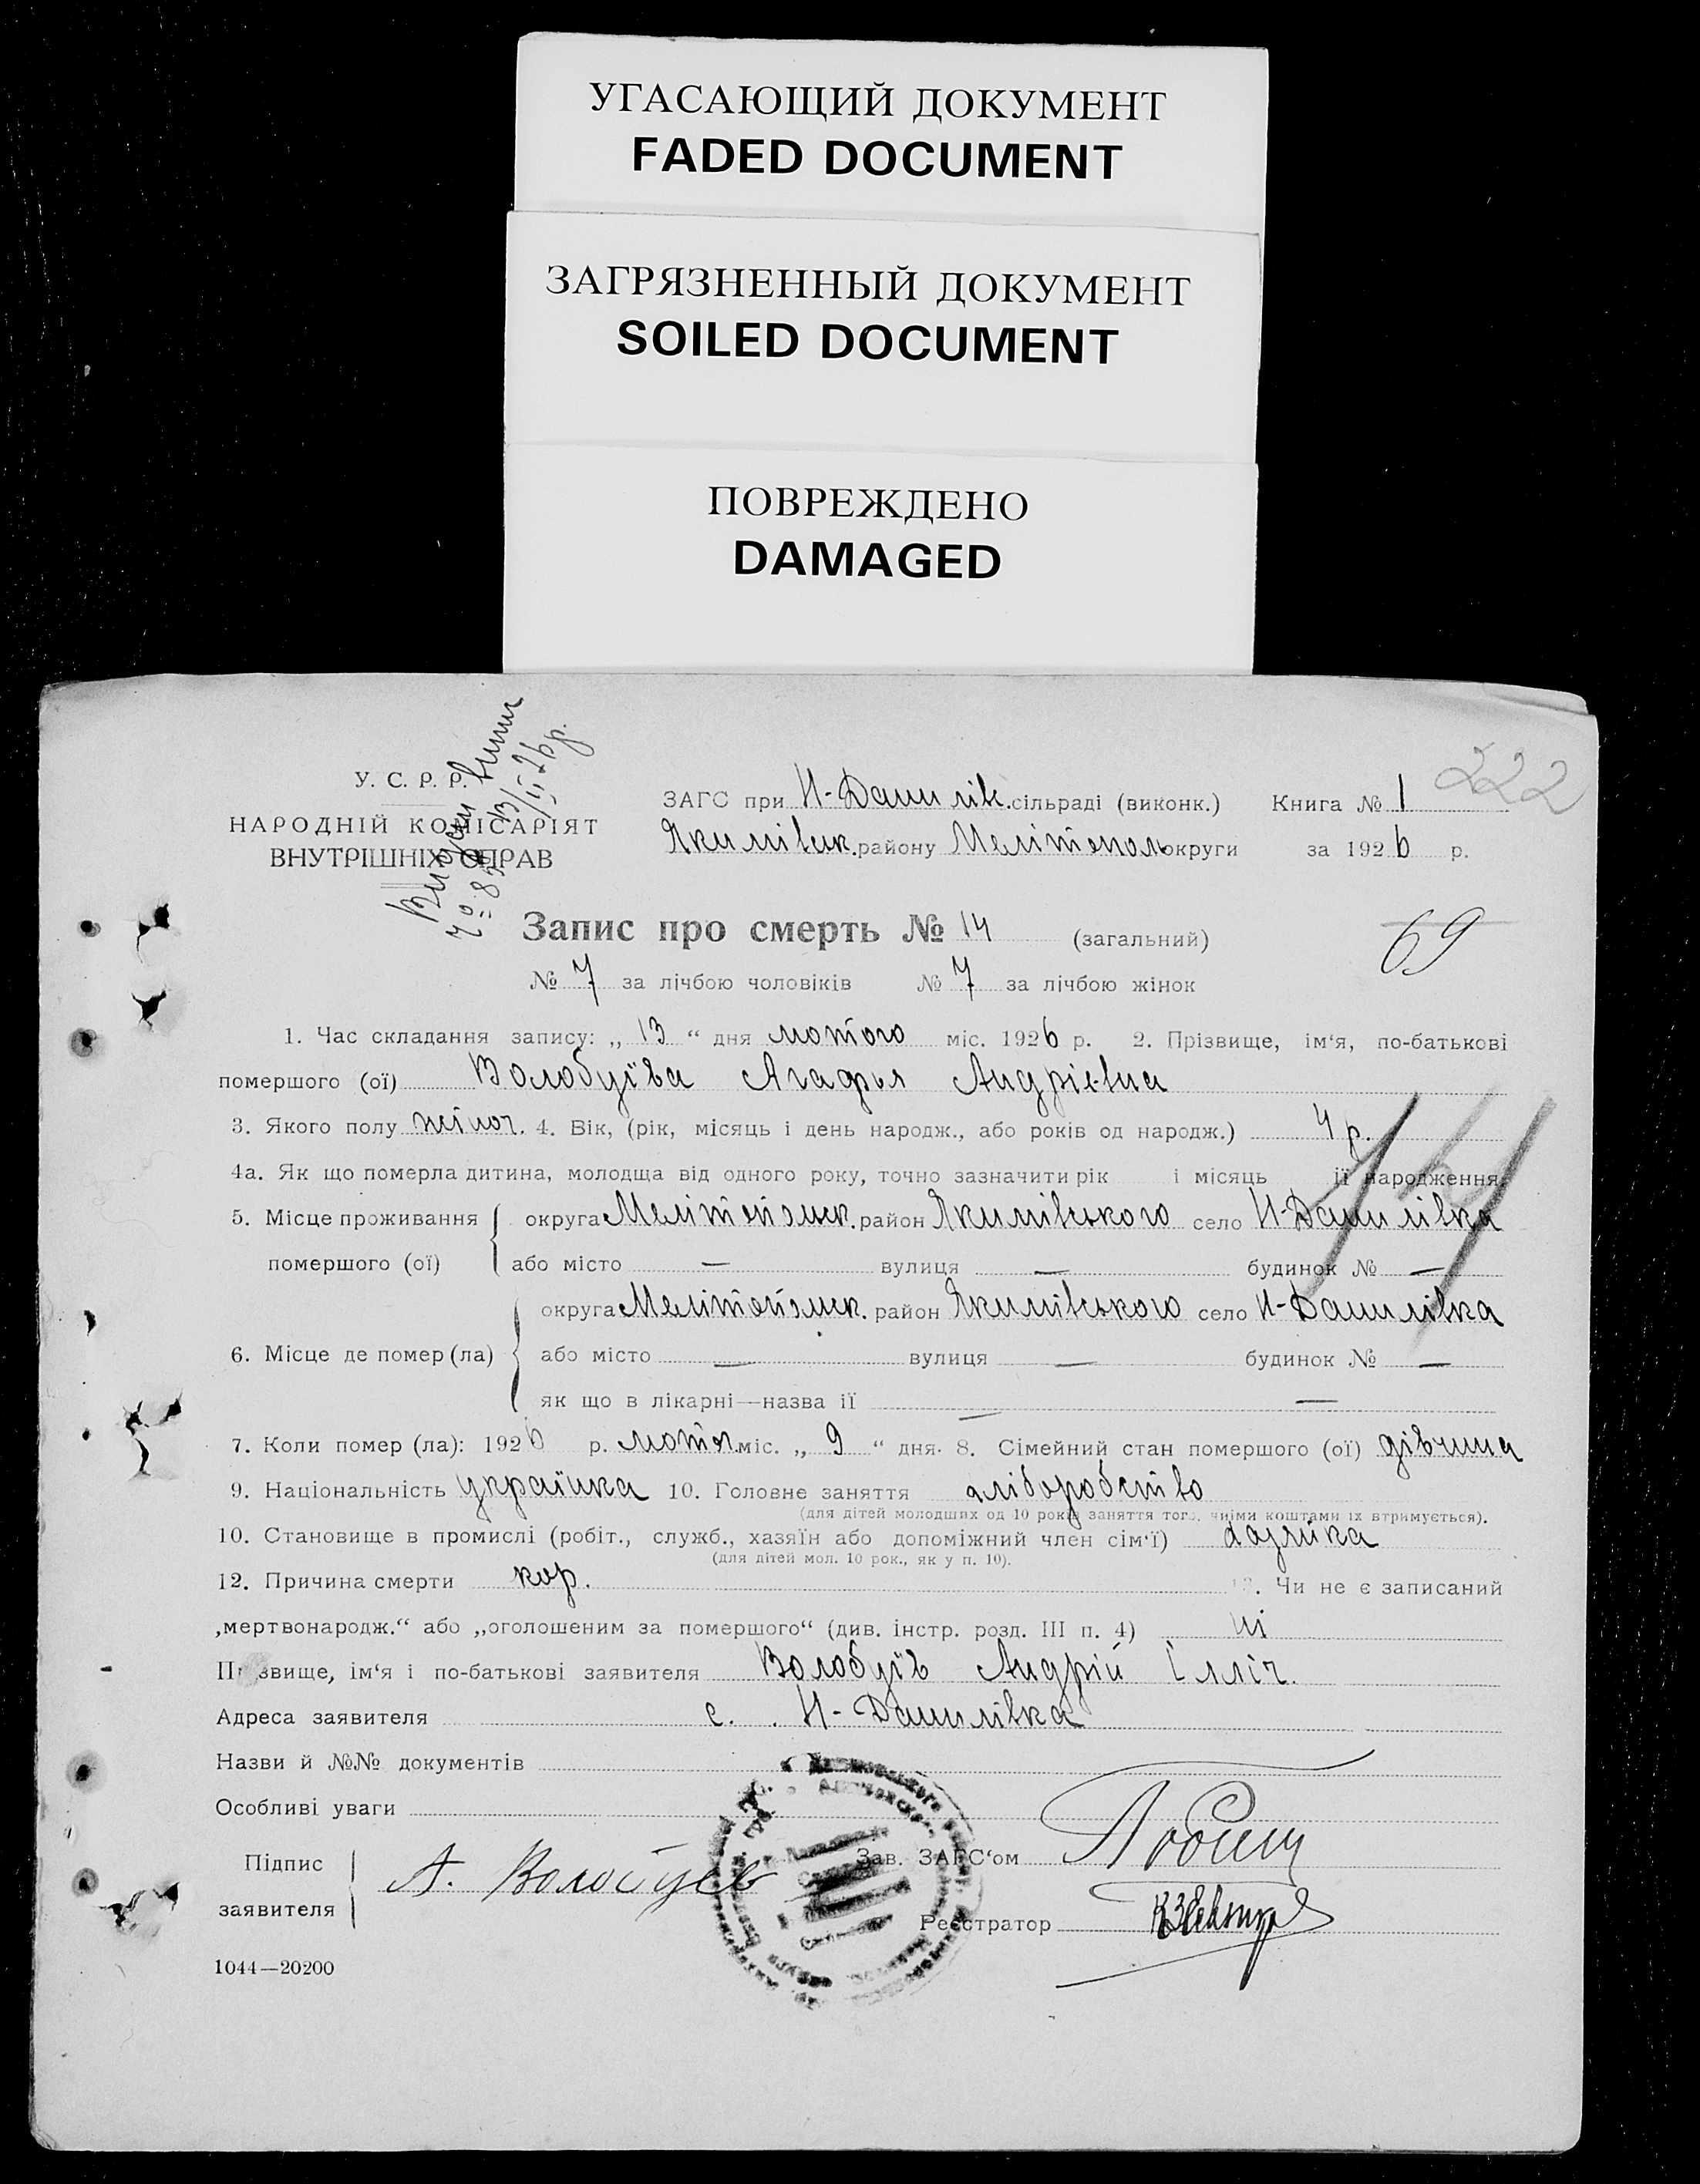 УГАСАЮЩИЙ ДОКУМЕНТ
FADED DOCUMENT
ЗАГРЯЗНЕННЫЙ ДОКУМЕНТ
SOILED DOCUMENT
ПОВРЕЖДЕНО
DAMAGED
222
У. С. Р. Р.
НАРОДНІЙ КОМІСАРІЯТ
ВНУТРІШНІХ СПРАВ
ЗАГС при Н-Данилів. сільраді (виконк.) Книга № 1
Якимівськ. району Мелітополь округи за 1926 р.
Запис про смерть № 14 (загальний)
69
№ 7 за лічбою чоловіків № 7 за лічбою жінок
1. Час складання запису: „ 13 “ дня лютого міс. 1926 р. 2. Прізвище, ім‘я, по-батькові
помершого (ої) Волобуїва Агафья Андріевна
3. Якого полу жіноч. 4. Вік, (рік, місяць і день народж., або років од народж.) 4 р.
4а. Як що померла дитина, молодща від одного року, точно зазначити рік і місяць її народження.
5. Місце проживання округа Мелітопольск. район Якимівського село Н-Данилівка
помершого (ої) або місто — вулиця — будинок № —
округа Мелітопольск. район Якимівського село Н-Данилівка
6. Місце де помер (ла) або місто — вулиця — будинок № —
як що в лікарні—назва її —
7. Коли помер (ла): 1926 р. лютог. міс. „ 9 “ дня. 8. Сімейний стан помершого (ої) дівчина
9. Національність українка 10. Головне заняття хліборобство
(для дітей молодших од 10 років заняття того, чиїми коштами їх втримується).
10. Становище в промислі (робіт., служб., хазяїн або допоміжний член сім‘ї)
(для дітей мол. 10 рок., як у п. 10).
12. Причина смерти кор. 13. Чи не є записаний
„мертвонародж.“ або „оголошеним за помершого“ (див. інстр. розд. III п. 4) ні
Прізвище, ім‘я і по-батькові заявителя Волобуїв Андрій Ілліч.
Адреса заявителя с. Н-Данилівка
Назви й №№ документів
Особливі уваги
Підпис
заявителя А. Волобуев
Зав. ЗАГС‘ом
Реєстратор
1044—20200